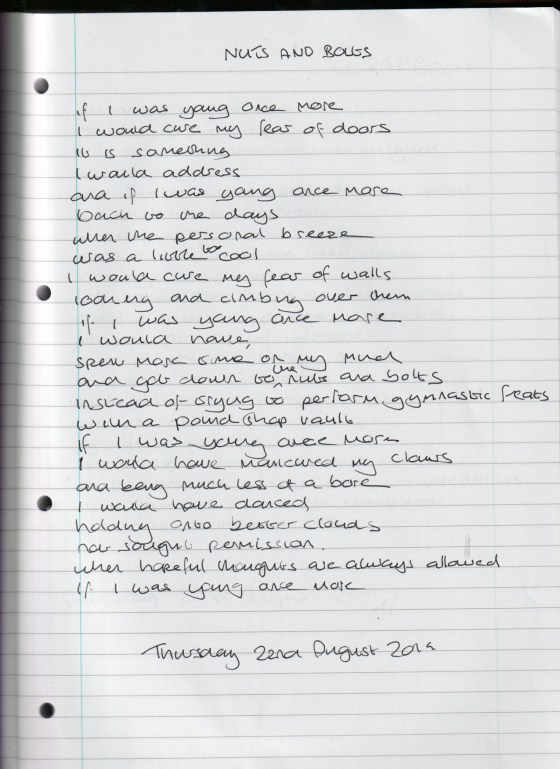 NUTS AND BOLTS
if I was young once more
I would cure my fear of doors
it is something
I would address
and if I was young once more
back to the days
when the personal breeze
was a little too cool
I would cure my fear of walls
looking and climbing over them
if I was young once more
I would have,
spent more time on my mind
and got down to the nuts and bolts
instead of trying to perform gymnastic feats
with a pound shop vault
if I was young once more
I would have manicured my claws
and being much less of a bore
I would have danced
holding onto better clouds
not sought permission.
when hateful thoughts are always allowed
if I was young once more
Thursday 22nd August 2019